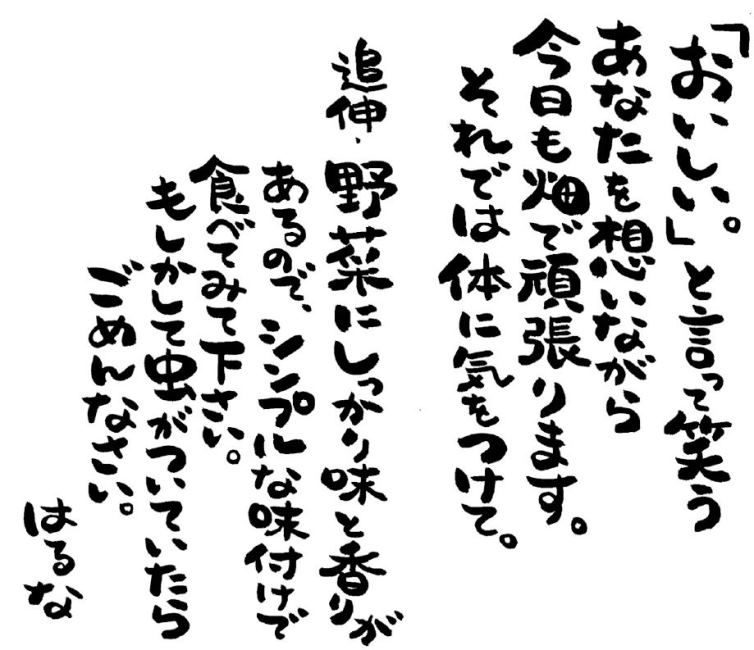 「おいしい。」と言って笑う
あなたを想いながら
今日も畑で頑張ります。
それでは体に気をつけて。
追伸.野菜にしっかり味と香りが
あるので、シンプルな味付けで
食べてみて下さい。
もしかして虫がついていたら
ごめんなさい。
はるな